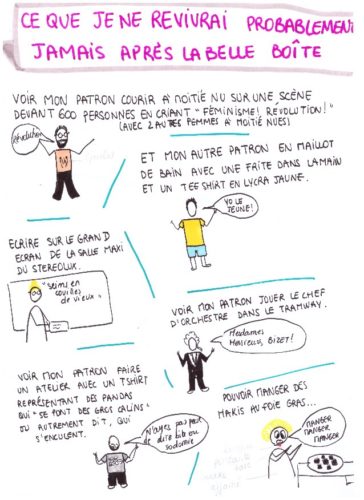 CE QUE JE NE REVIVRAI PROBABLEMENT
JAMAIS APRÈS LA BELLE BOÎTE
VOIR MON PATRON COURIR À MOITIÉ NU SUR UNE SCÈNE
DEVANT 600 PERSONNES EN CRIANT "FÉMINISME! RÉVOLUTION!"
(AVEC 2 AUTRES FEMMES À MOITIÉ NUES)
Révolution
ET MON AUTRE PATRON EN MAILLOT
DE BAIN AVEC UNE FRITE DANS LA MAIN
ET UN TEE SHIRT EN LYCRA JAUNE.
YO LE
JEUNE!
ECRIRE SUR LE GRAND
ECRAN DE LA SALLE MAXI
DU STEREOLUX.
"seins en
couilles
de vieux"
VOIR MON PATRON JOUER LE CHEF
D'ORCHESTRE DANS LE TRAMWAY.
Mesdames
Messieurs, BIZET!
VOIR MON PATRON FAIRE
UN ATELIER AVEC UN TSHIRT
REPRÉSENTANT DES PANDAS
QUI "SE FONT DES GROS CALINS"
OU AUTREMENT DIT, QUI
S'ENCULENT.
N'ayez pas peur
de dire bib ou
sodomie
POUVOIR MANGER DES
MAKIS AU FOIE GRAS...
MANGER
MANGER
MANGER